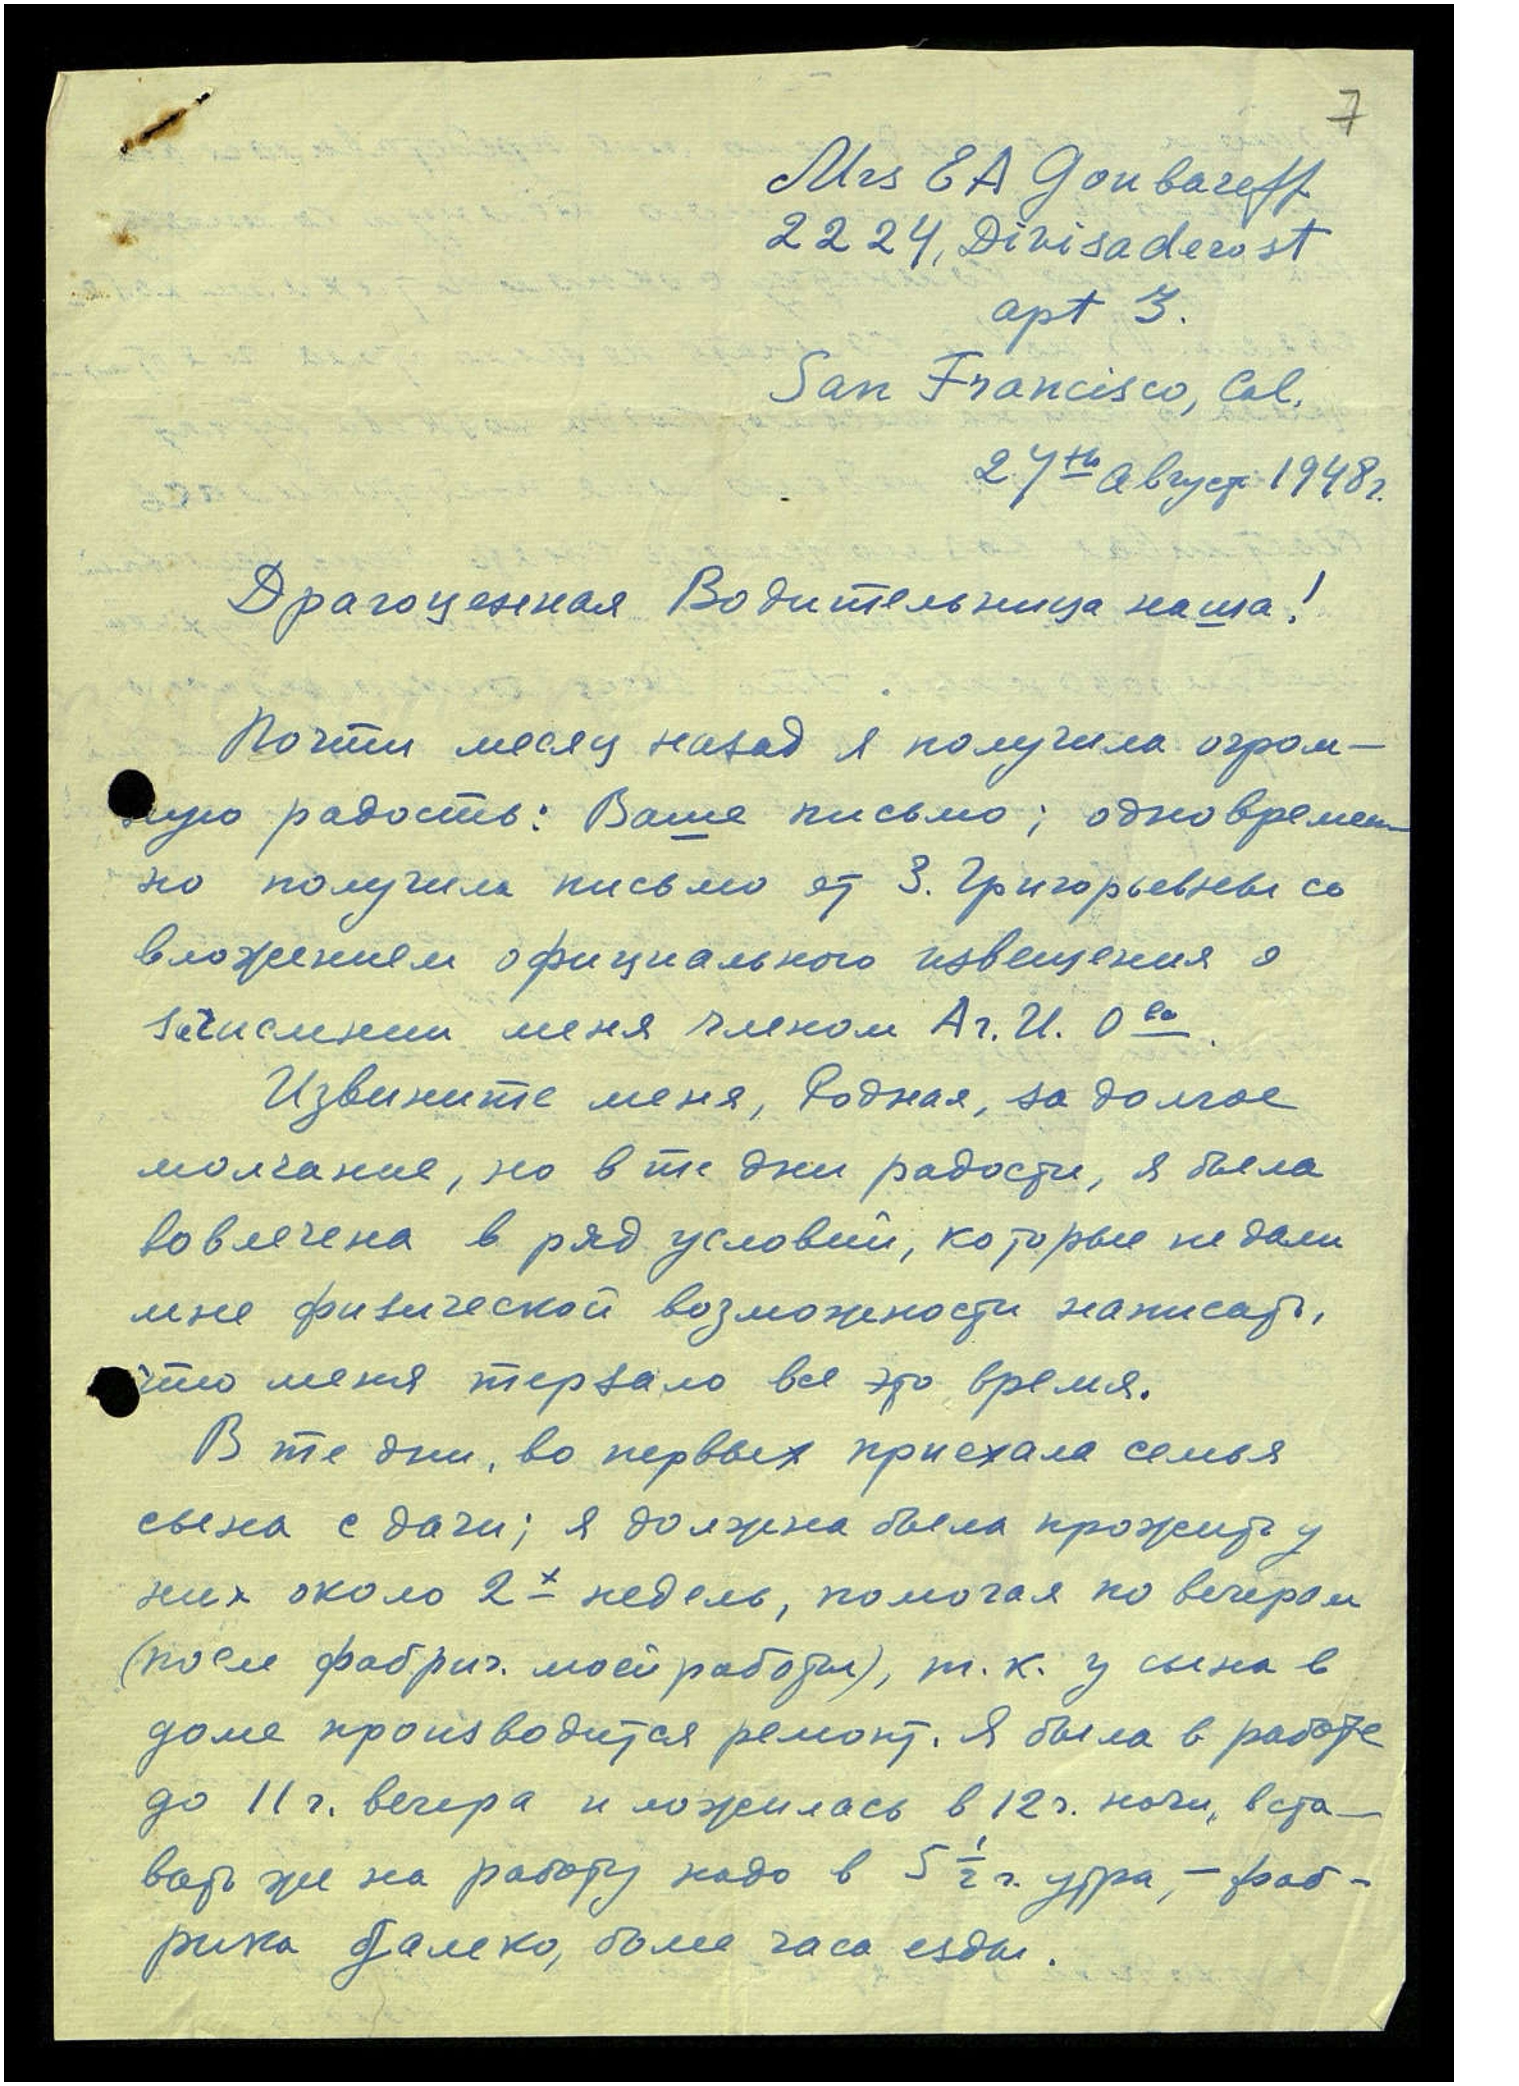 7
Mrs E A Gonbareff
2224, Divisadero st
apt 3.
San Francisco, Cal.
27th Август 1948 г.
Драгоценная Водительница наша!
Почти месяц назад я получила огром-
ную радость: Ваше письмо; одновремен-
но получила письмо от З. Григорьевны со
вложением официального извещения о
зачислении меня членом Аг. И. О ва.
Извините меня, Родная, за долгое
молчание, но в те дни радости, я была
вовлечена в ряд условий, которые не дали
мне физической возможности написать,
что меня терзало все это время.
В те дни, во первых приехала семья
сына с дачи; я должна была прожить у
них около 2х недель, помогая по вечерам
(после фабрич. моей работы), т. к. у сына в
доме производится ремонт. Я была в работе
до 11 г. вечера и ложилась в 12 ч. ночи, вста-
вать же на работу надо в 5 1/2 ч. утра, – фаб-
рика далеко, более часа езды.